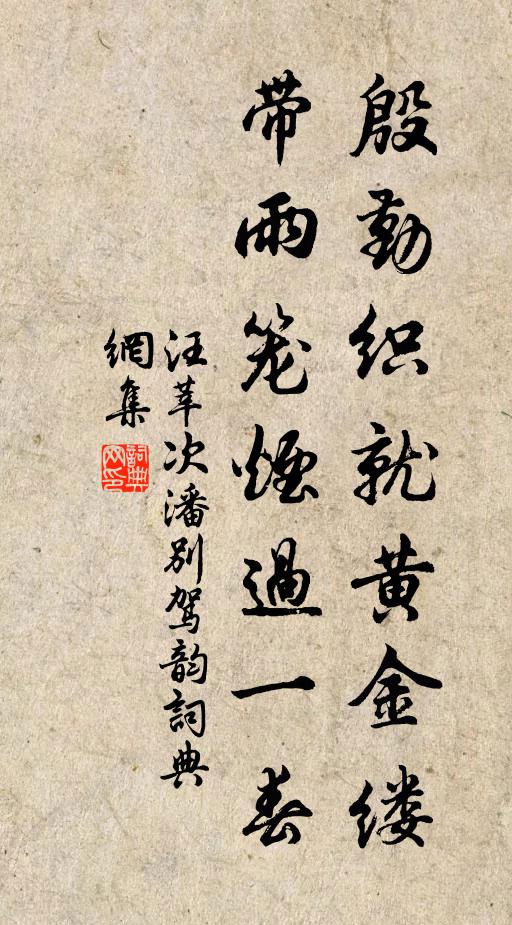 殷勤织就黄金缕
带雨笼烟过一春
汪莘次潘别驾韵詞典
網集
詞典
网印